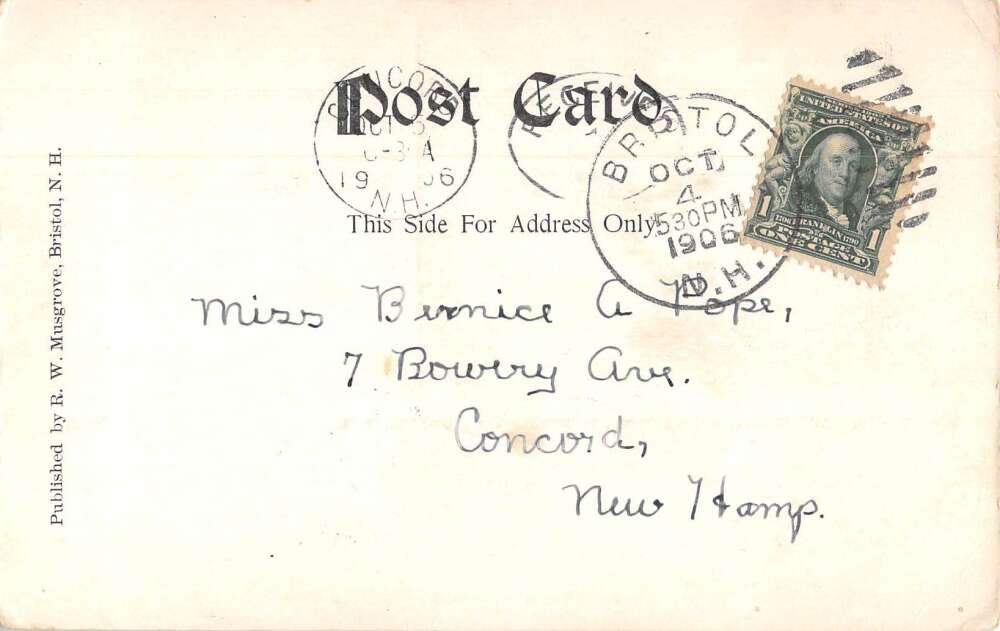 Post Card
CONCORD
OCT 5
19 06
N.H.
RECEIVED
BRISTOL
OCT
4
530PM
1906
N.H.
UNITED STATES OF
AMERICA
1 1706 FRANKLIN 1790 1
POSTAGE
ONE CENT
This Side For Address Only.
Miss Bernice A Pope,
7 Bowery Ave.
Concord,
New Hamp.
Published by R. W. Musgrove, Bristol, N. H.